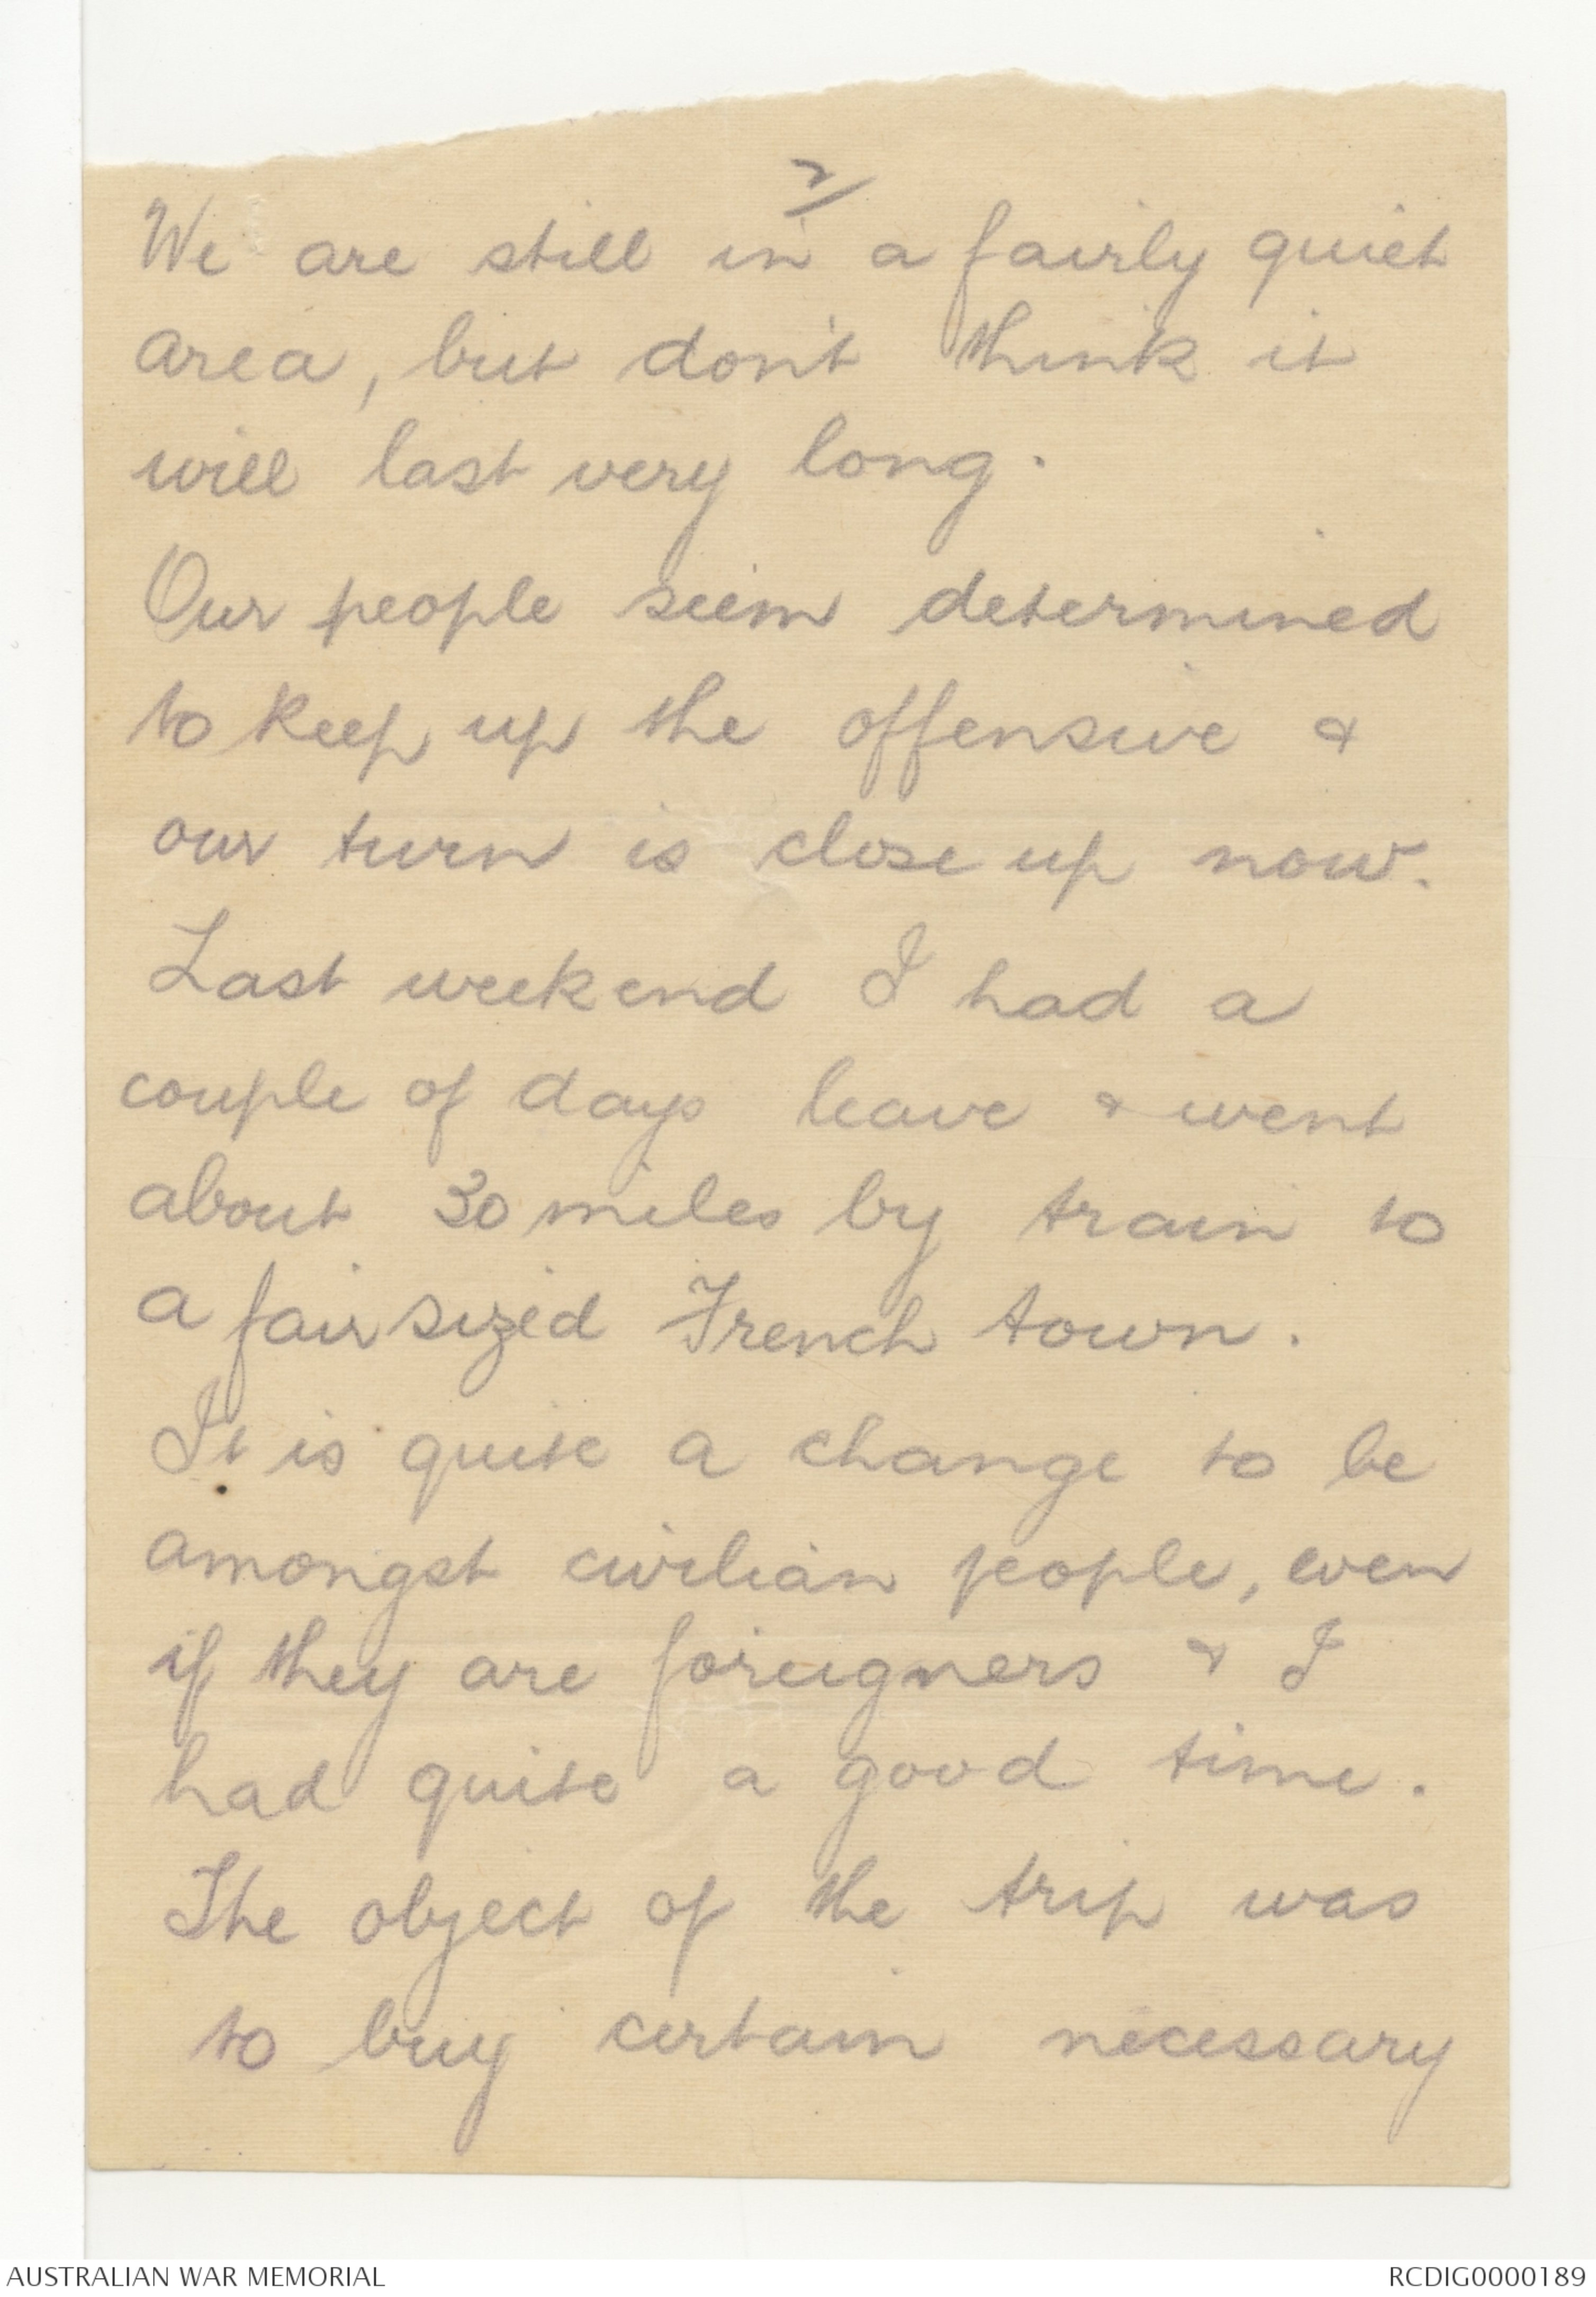 2/
We are still in a fairly quiet
area, but don't think it
will last very long.
Our people seem determined
to keep up the offensive &
our turn is close up now.
Last weekend I had a
couple of days leave & went
about 30 miles by train to
a fair sized French town.
It is quite a change to be
amongst civilian people, even
if they are foreigners & I
had quite a good time.
The object of the trip was
to buy certain necessary
AUSTRALIAN WAR MEMORIAL
RCDIG0000189